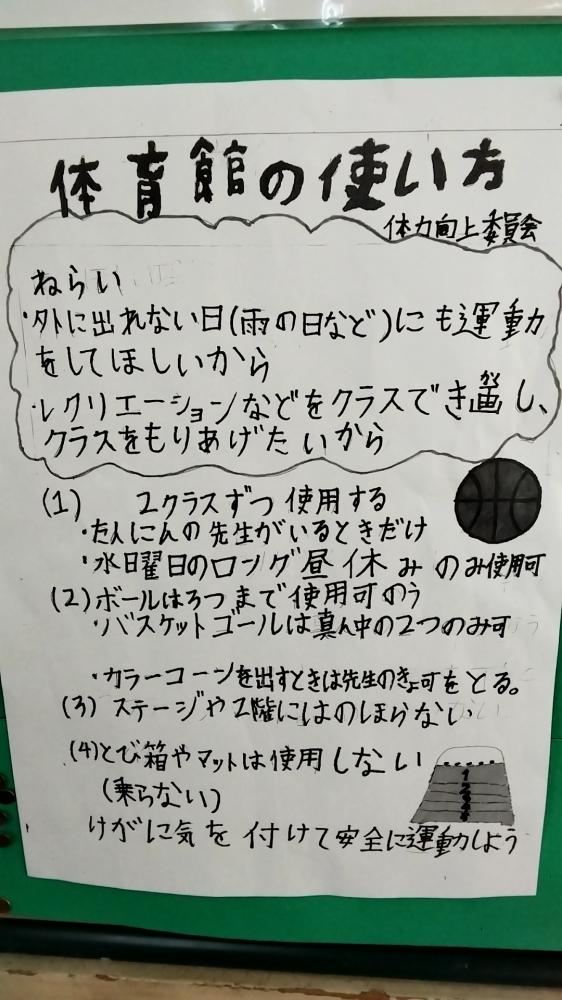 体育館の使い方
体力向上委員会
ねらい
・外に出れない日(雨の日など)にも運動
をしてほしいから
・レクリエーションなどをクラスでき画(が)し、
クラスをもりあげたいから
(1) 2クラスずつ使用する
・たんにんの先生がいるときだけ
・水曜日のロング昼休みのみ使用可
(2)ボールは3つまで使用可のう
・バスケットゴールは真ん中の2つのみ可
・カラーコーンを出すときは先生のきょ可をとる。
(3)ステージや2階にはのぼらない
(4)とび箱やマットは使用しない
(乗らない)
1
2
3
けがに気を付けて安全に運動しよう